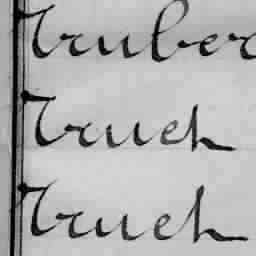 Truber
Truch
Truch